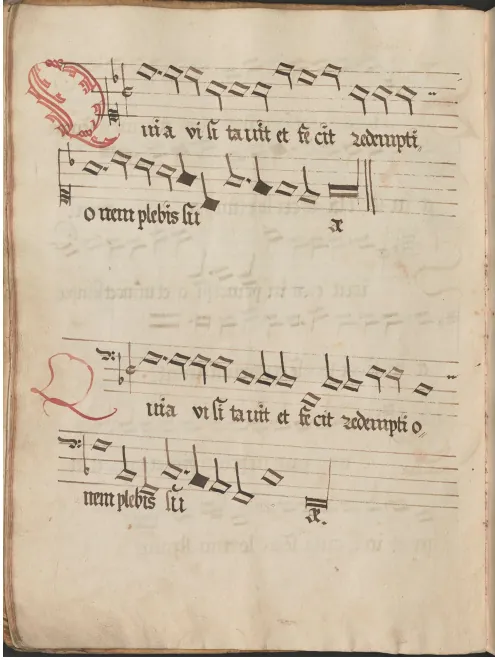 Quia vi si ta uit et fe cit redempti
o nem plebis sui
Quia vi si ta uit et fe cit redempti o
nem plebis sui